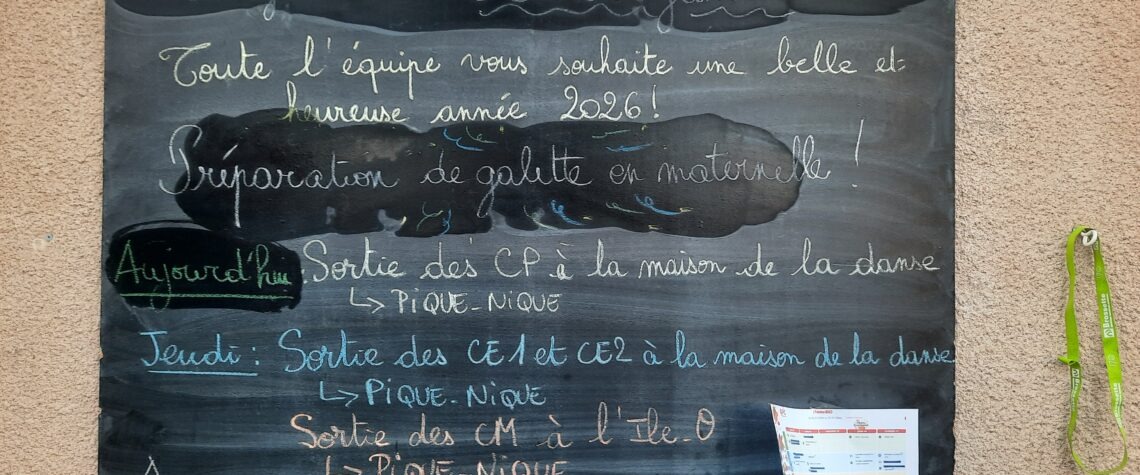 Toute l'équipe vous souhaite une belle et
heureuse année 2026 !
Préparation de galette en maternelle !
Aujourd'hui : Sortie des CP à la maison de la danse
↳ PIQUE-NIQUE
Jeudi : Sortie des CE1 et CE2 à la maison de la danse
↳ PIQUE-NIQUE
Sortie des CM à l'Ile-O
↳ PIQUE-NIQUE